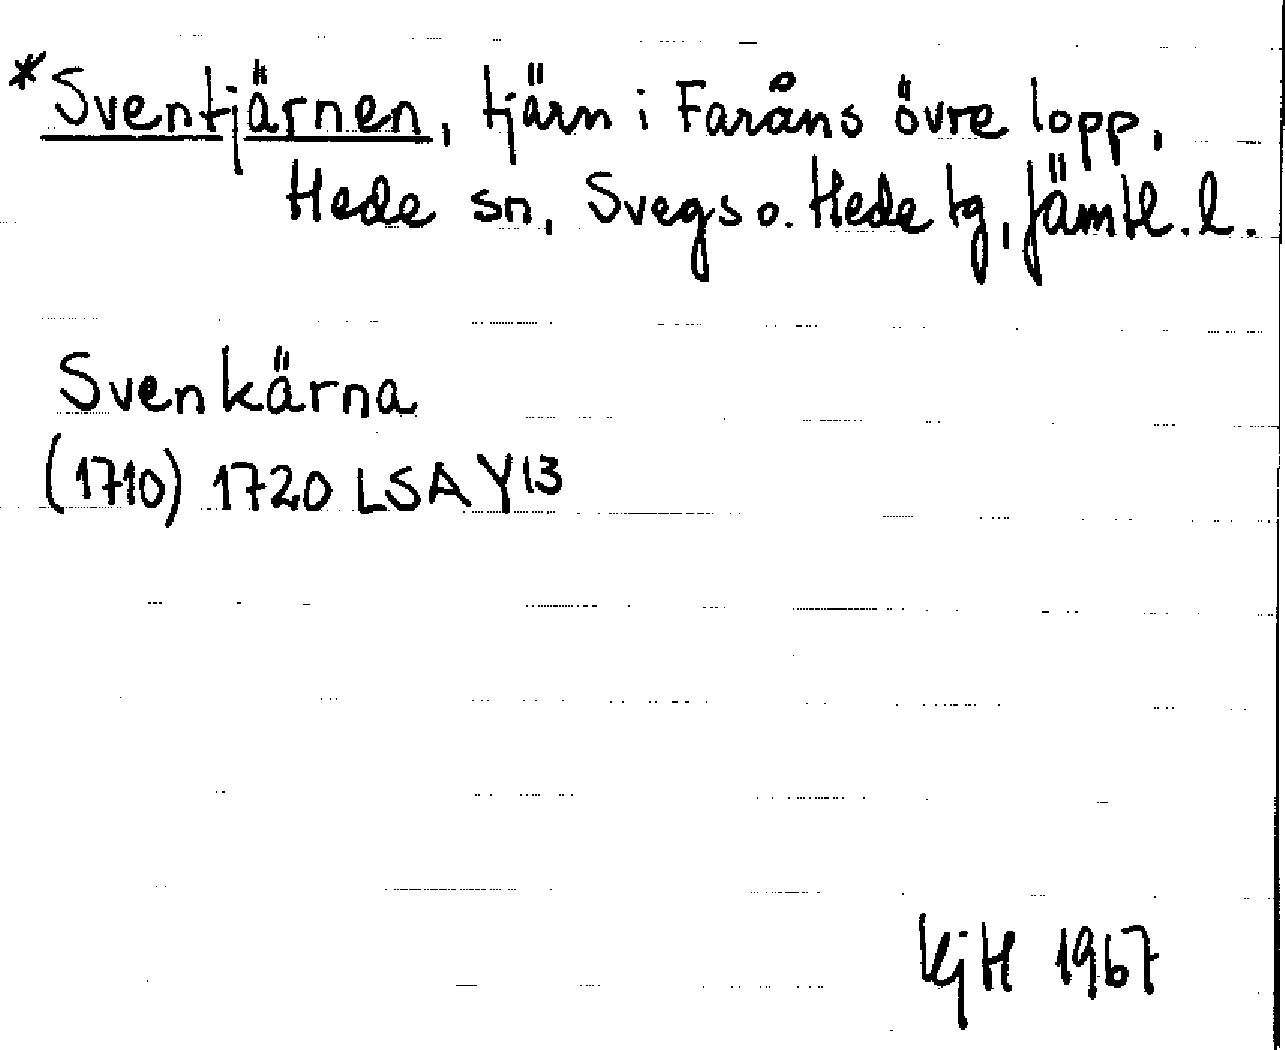 *Sventjärnen, tjärn i Faråns övre lopp,
Hede sn, Svegs o. Hede tg, Jämtl. l.
Svenkärna
(1710) 1720 LSA Y13
KjH 1967